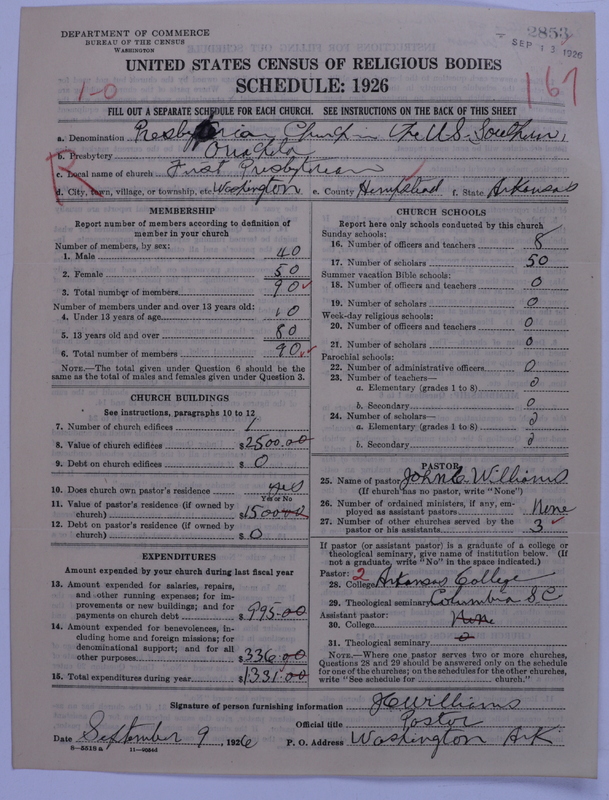 2853
SEP 13 1926
DEPARTMENT OF COMMERCE
BUREAU OF THE CENSUS
WASHINGTON
UNITED STATES CENSUS OF RELIGIOUS BODIES
SCHEDULE: 1926
1-0
167
FILL OUT A SEPARATE SCHEDULE FOR EACH CHURCH. SEE INSTRUCTIONS ON THE BACK OF THIS SHEET
R
a. Denomination Presbyterian Church in the U.S. Southern,
b. Presbytery Ouachita
c. Local name of church First Presbyterian
d. City, town, village, or township, etc. Washington e. County Hempstead f. State Arkansas
MEMBERSHIP
Report number of members according to definition of
member in your church
Number of members, by sex:
1. Male 40
2. Female 50
3. Total number of members 90
Number of members under and over 13 years old:
4. Under 13 years of age 10
5. 13 years old and over 80
6. Total number of members 90
NOTE.—The total given under Question 6 should be
same as the total of males and females given under Question 3.
CHURCH BUILDINGS
See instructions, paragraphs 10 to 12
7. Number of church edifices 1
8. Value of church edifices $2500.00
9. Debt on church edifices $ 0
10. Does church own pastor's residence yes
Yes or No
11. Value of pastor's residence (if owned by
church) $1500.00
12. Debt on pastor's residence (if owned by
church) $ 0
EXPENDITURES
Amount expended by your church during last fiscal year
13. Amount expended for salaries, repairs,
and other running expenses; for im-
provements or new buildings; and for
payments on church debt $ 995.00
14. Amount expended for benevolences, in-
cluding home and foreign missions; for
denominational support; and for all
other purposes $ 336.00
15. Total expenditures during year $1331.00
CHURCH SCHOOLS
Report here only schools conducted by this church
Sunday schools:
16. Number of officers and teachers 8
17. Number of scholars 50
Summer vacation Bible schools:
18. Number of officers and teachers 0
19. Number of scholars 0
Week-day religious schools:
20. Number of officers and teachers 0
21. Number of scholars 0
Parochial schools:
22. Number of administrative officers 0
23. Number of teachers—
a. Elementary (grades 1 to 8) 0
b. Secondary 0
24. Number of scholars—
a. Elementary (grades 1 to 8) 0
b. Secondary 0
PASTOR
25. Name of pastor John C Williams
(If church has no pastor, write "None")
26. Number of ordained ministers, if any, em-
ployed as assistant pastors None
27. Number of other churches served by the
pastor or his assistants 3
If pastor (or assistant pastor) is a graduate of a college or
theological seminary, give name of institution below. (If
not a graduate, write "No" in the space indicated.)
Pastor: 2
28. College Arkansas College
29. Theological seminary Columbia S C
Assistant pastor:
30. College None
31. Theological seminary 0
NOTE.—Where one pastor serves two or more churches,
Questions 28 and 29 should be answered only on the schedule
for one of the churches; on the schedules for the other churches,
write "See schedule for church."
Signature of person furnishing information J C Williams
Official title Pastor
Date September 9, 1926 P. O. Address Washington Ark
8-5518a